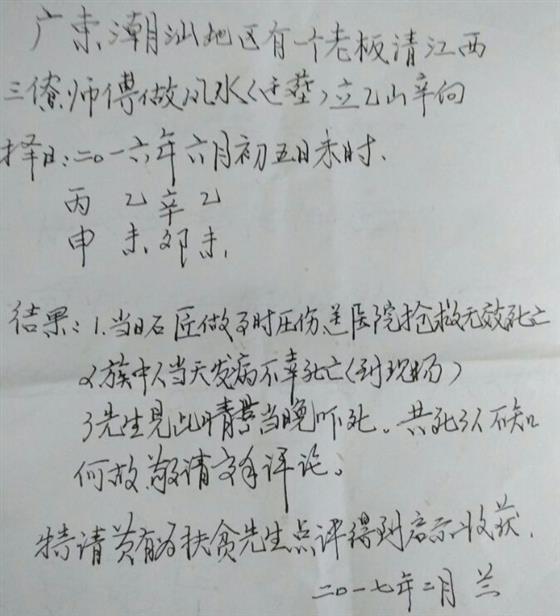 广东潮汕地区有一个老板请江西
三僚师傅做风水(迁葬)立乙山辛向
择日:二0一六年六月初五日未时.
丙 乙 辛 乙
申 未 卯 未.
结果:1.当日石匠做事时压伤送医院抢救无效死亡
2族中人当天发病不幸死亡(到现场)
3先生见此情景当晚吓死。共死3人不知
何故敬请方家评论。
特请黄有为扶贫先生点评得到启示收获.
二0一七年二月 兰